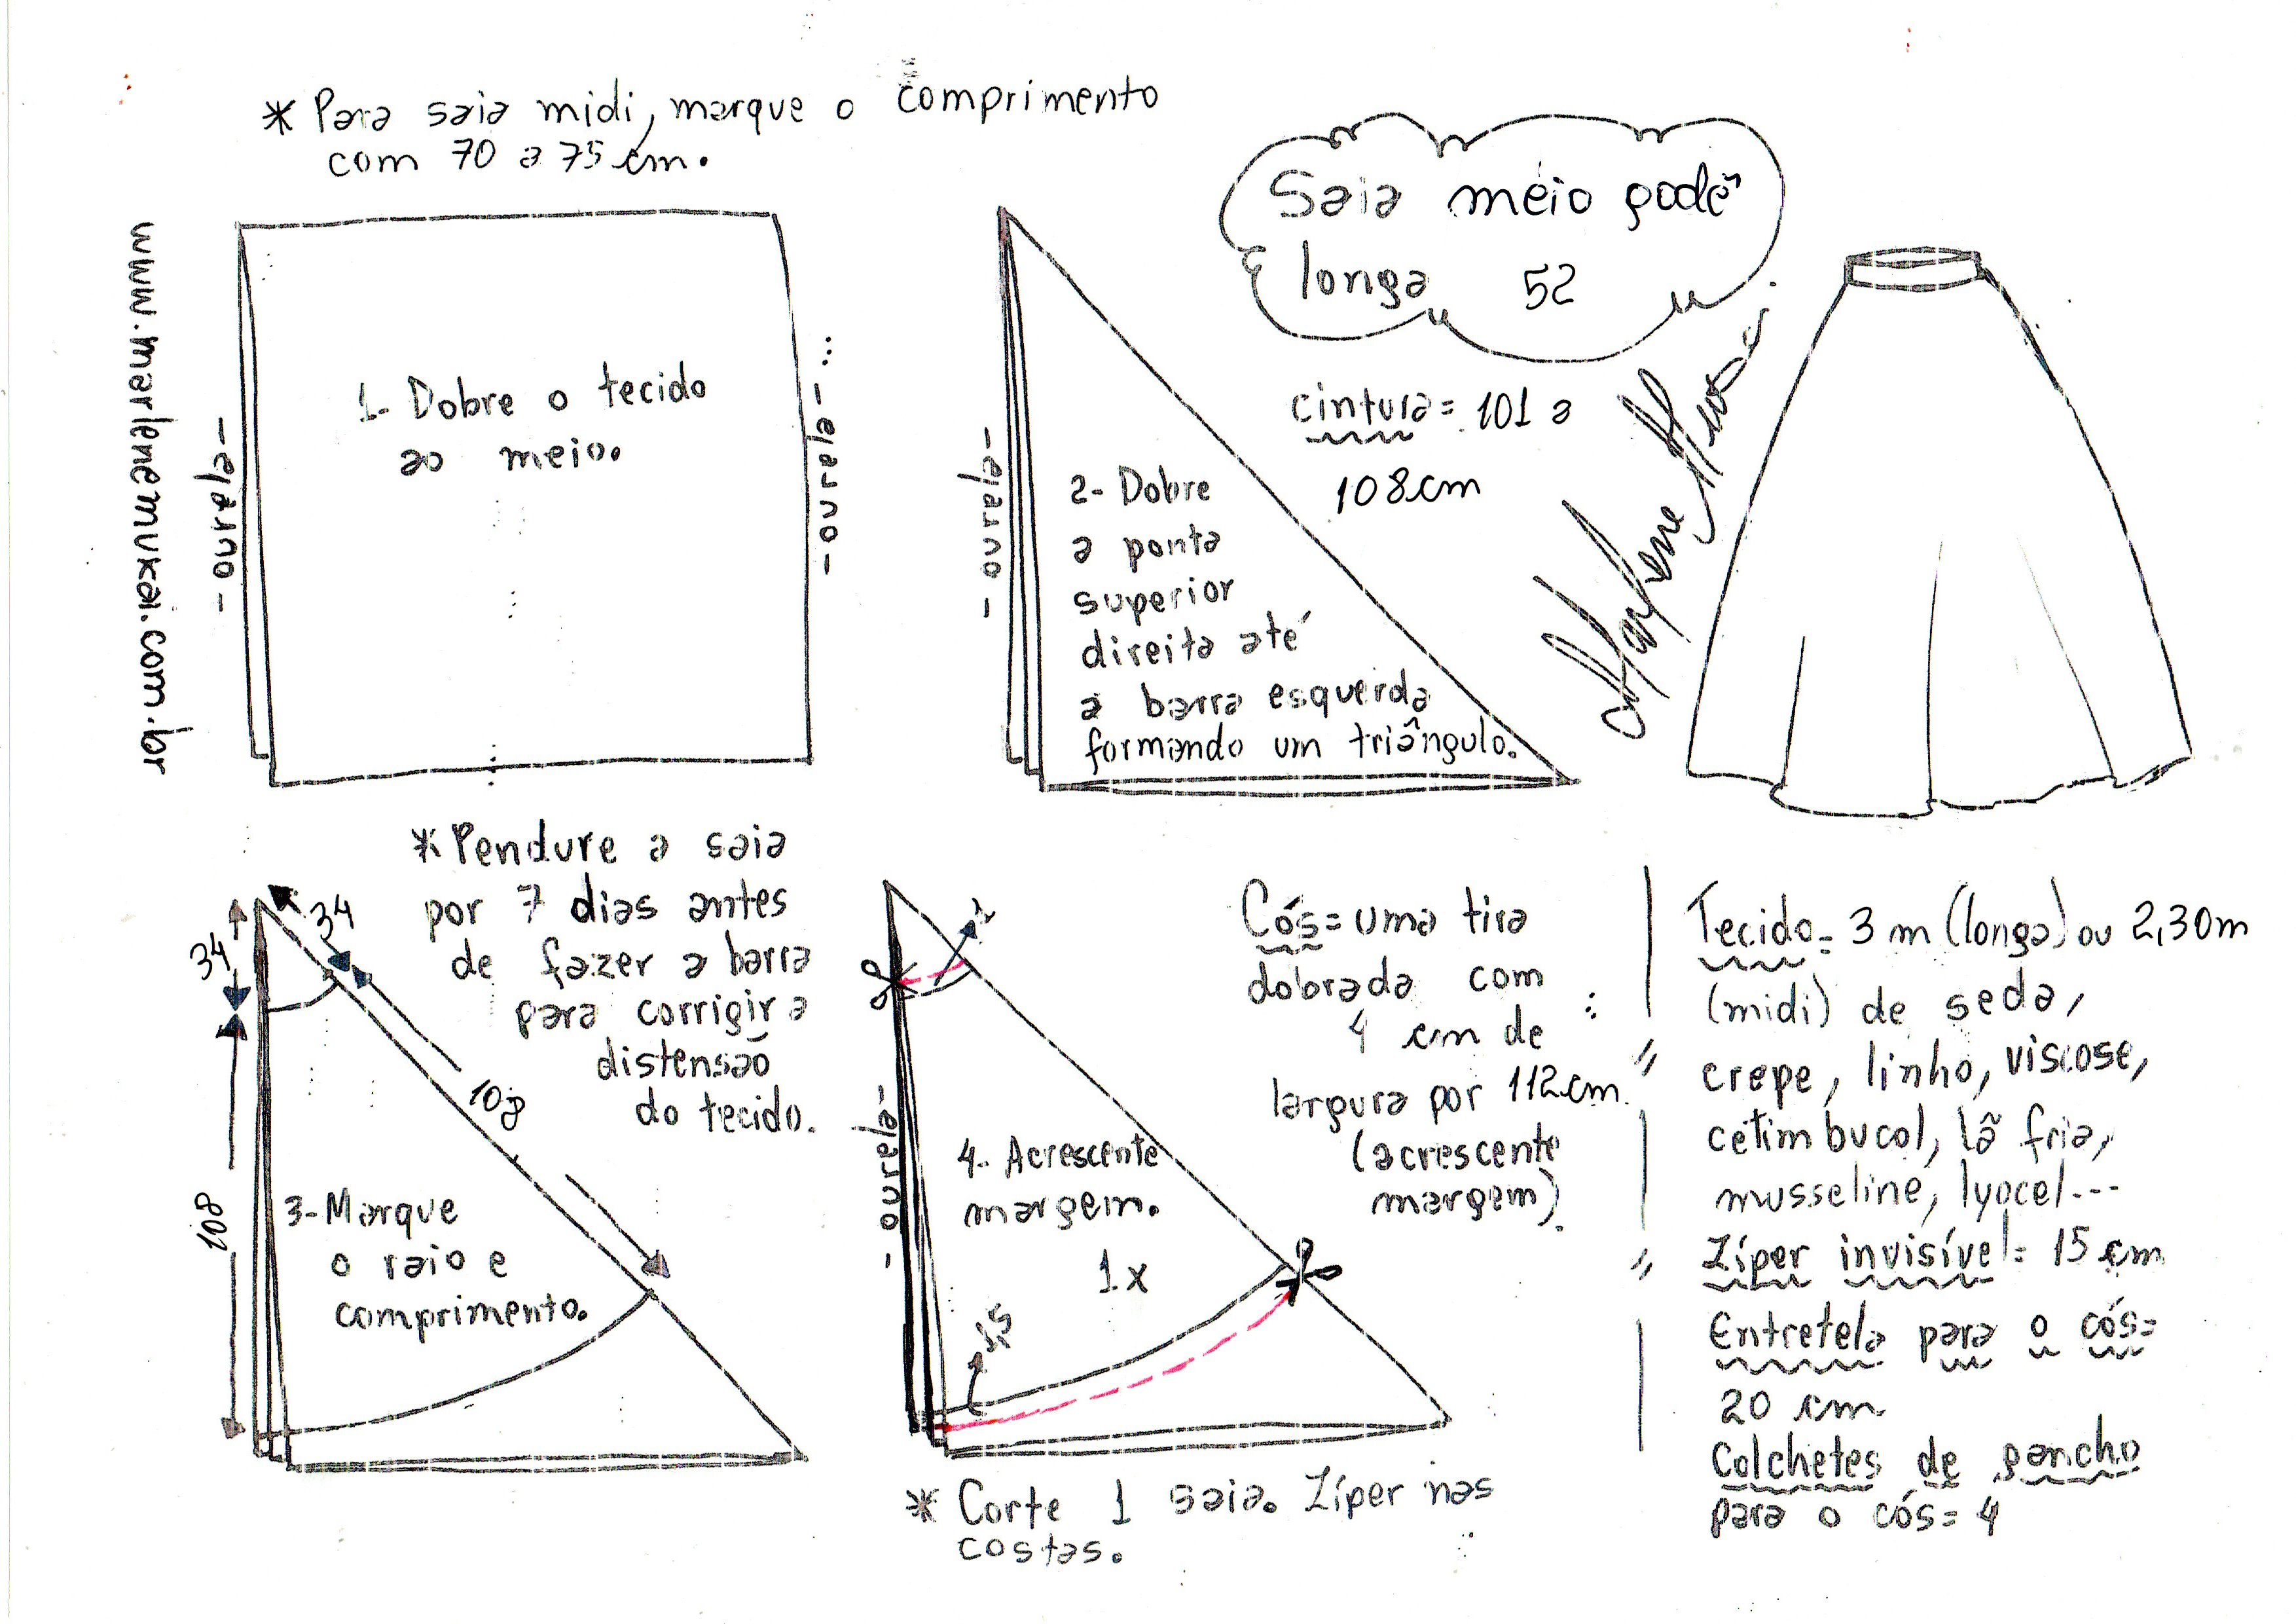 * Para saia midi, marque o comprimento
com 70 a 75 cm.
www.marlenemukai.com.br
Saia meio godê
longa 52
1- Dobre o tecido
ao meio.
- ourela -
- ourela - ...
2- Dobre
a ponta
superior
direita até
a barra esquerda
formando um triângulo.
- ourela -
cintura = 101 a
108 cm
Marlene Mukai
* Pendure a saia
por 7 dias antes
de fazer a barra
para corrigir a
distensão
do tecido.
34
34
108
108
3- Marque
o raio e
comprimento.
4- Acrescente
margem.
1x
- ourela -
1
1,5
* Corte 1 saia. Zíper nas
costas.
Cós = uma tira
dobrada com
4 cm de
largura por 112 cm.
(acrescente
margem)
Tecido = 3 m (longa) ou 2,30m
(midi) de seda,
crepe, linho, viscose,
cetim bucol, lã fria,
musseline, lyocel...
Zíper invisível = 15 cm
Entretela para o cós =
20 cm
Colchetes de gancho
para o cós = 4